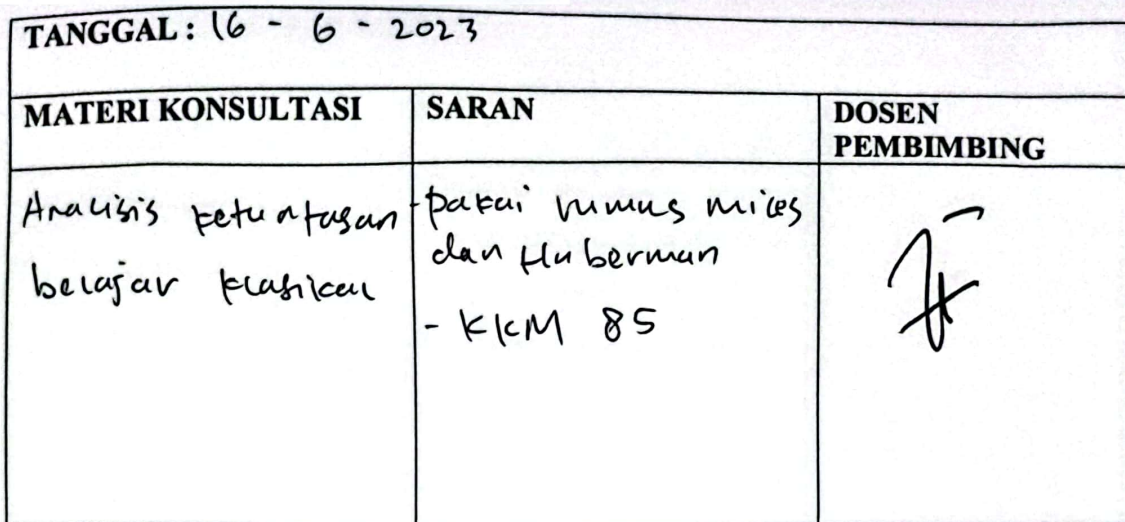 TANGGAL : 16 - 6 - 2023
MATERI KONSULTASI
SARAN
DOSEN
PEMBIMBING
Analisis ketuntasan
belajar klasikal
- pakai rumus miles
dan Huberman
- KKM 85